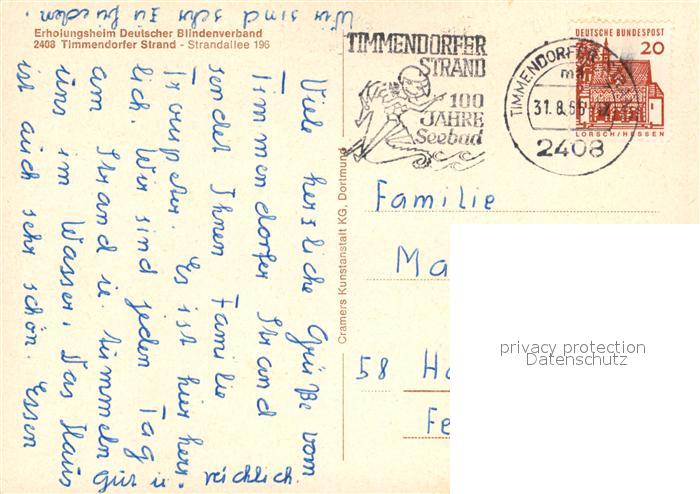 Erholungsheim Deutscher Blindenverband
2408 Timmendorfer Strand - Strandallee 196
Viele herzliche Grüße vom
Timmendorfer Strand
sendet Ihnen Familie
Es ist hier herr-
lich. Wir sind jeden Tag
am Strand u. tummeln
uns im Wasser. Das Haus
ist auch sehr schön. Essen
gut u. reichlich.
Wir sind sehr zufrieden.
Cramers Kunstanstalt KG, Dortmund
TIMMENDORFER
STRAND
100
JAHRE
Seebad
TIMMENDORFER
31.8.66
2408
DEUTSCHE BUNDESPOST
20
LORSCH/HESSEN
Familie
Ma
58 Ha
Fe
privacy protection
Datenschutz